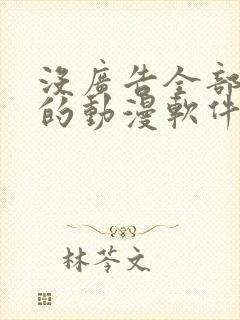 沒廣告全部
的動漫軟件
林苓文